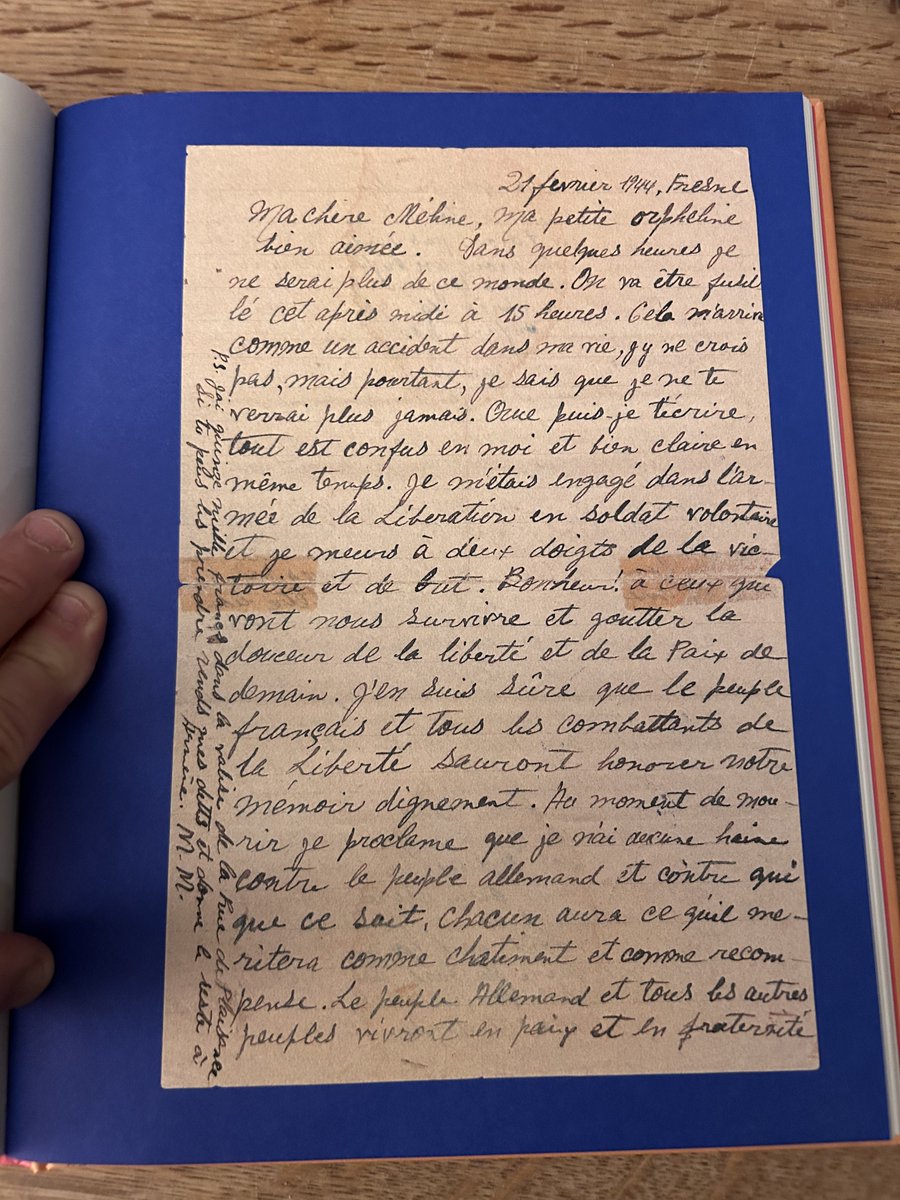 21 fevrier 1944, Fresne
Ma chère Méline, ma petite orpheline
bien aimée. Dans quelques heures je
ne serai plus de ce monde. On va être fusil-
lé cet après midi à 15 heures. Cela m'arrive
comme un accident dans ma vie, j'y ne crois
pas, mais pourtant, je sais que je ne te
verrai plus jamais. Que puis-je t'écrire,
tout est confus en moi et bien claire en
même temps. Je m'étais engagé dans l'ar-
mée de la Libération en soldat volontaire
et je meurs à deux doigts de la vic-
toire et de but. Bonheur! à ceux qui
vont nous survivre et goutter la
douceur de la liberté et de la Paix de
demain. J'en suis sûre que le peuple
français et tous les combattants de
la Liberté sauront honorer notre
mémoir dignement. Au moment de mou-
rir je proclame que je n'ai aucune haine
contre le peuple allemand et contre qui
que ce soit, chacun aura ce qu'il me-
ritera comme chatiment et comme recom-
pense. Le peuple Allemand et tous les autres
peuples vivront en paix et en fraternité
P.S. J'ai quinze mille francs dans la valise de la rue de Plaisance
Si tu peus les prendre rends mes detts et donne le reste à
Armène. M. M.